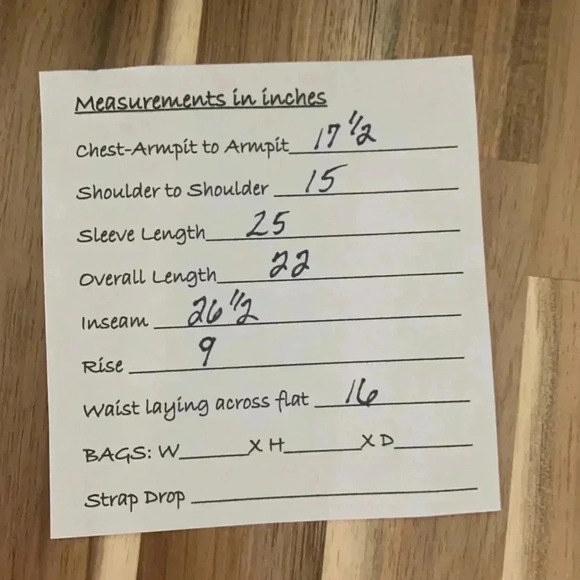 Measurements in inches
Chest-Armpit to Armpit 17 1/2
Shoulder to Shoulder 15
Sleeve Length 25
Overall Length 22
Inseam 26 1/2
Rise 9
Waist laying across flat 16
BAGS: W______X H______X D______
Strap Drop